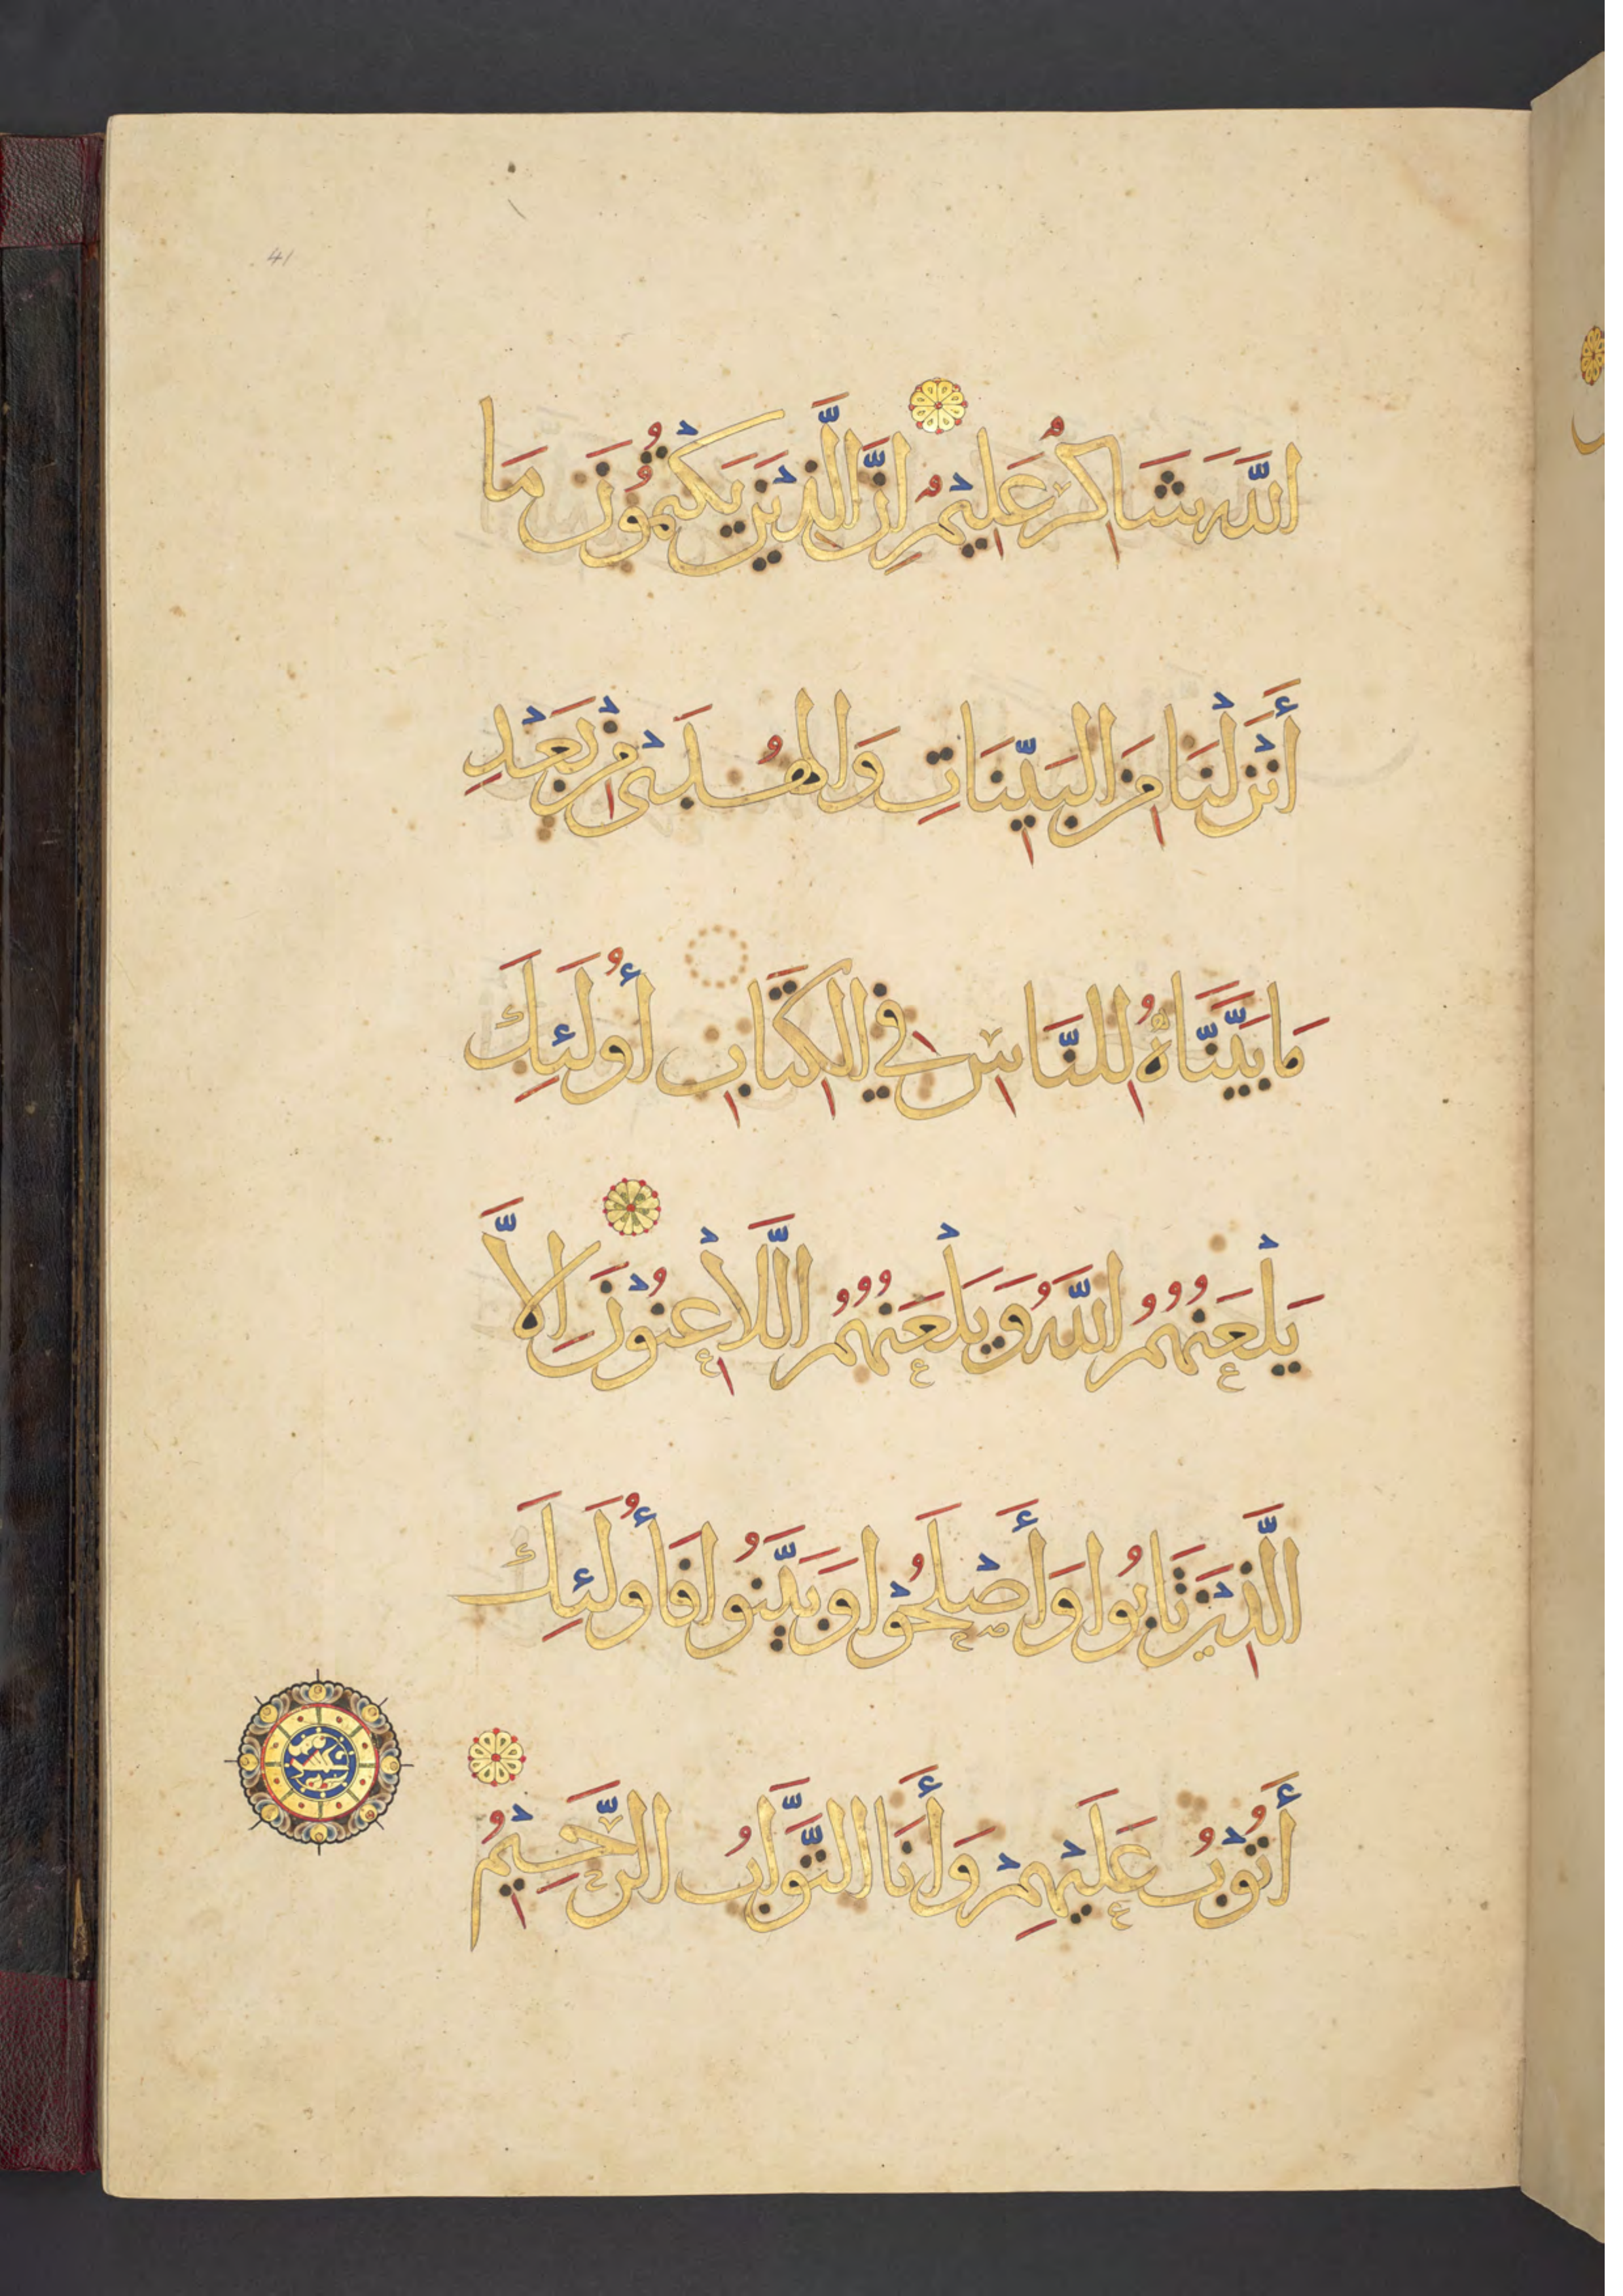 41
اللَّهَ شَاكِرٌ عَلِيمٌ إِنَّ الَّذِينَ يَكْتُمُونَ مَا
أَنْزَلْنَا مِنَ الْبَيِّنَاتِ وَالْهُدَى مِنْ بَعْدِ
مَا بَيَّنَّاهُ لِلنَّاسِ فِي الْكِتَابِ أُولَئِكَ
يَلْعَنُهُمُ اللَّهُ وَيَلْعَنُهُمُ اللَّاعِنُونَ إِلَّا
الَّذِينَ تَابُوا وَأَصْلَحُوا وَبَيَّنُوا فَأُولَئِكَ
أَتُوبُ عَلَيْهِمْ وَأَنَا التَّوَّابُ الرَّحِيمُ